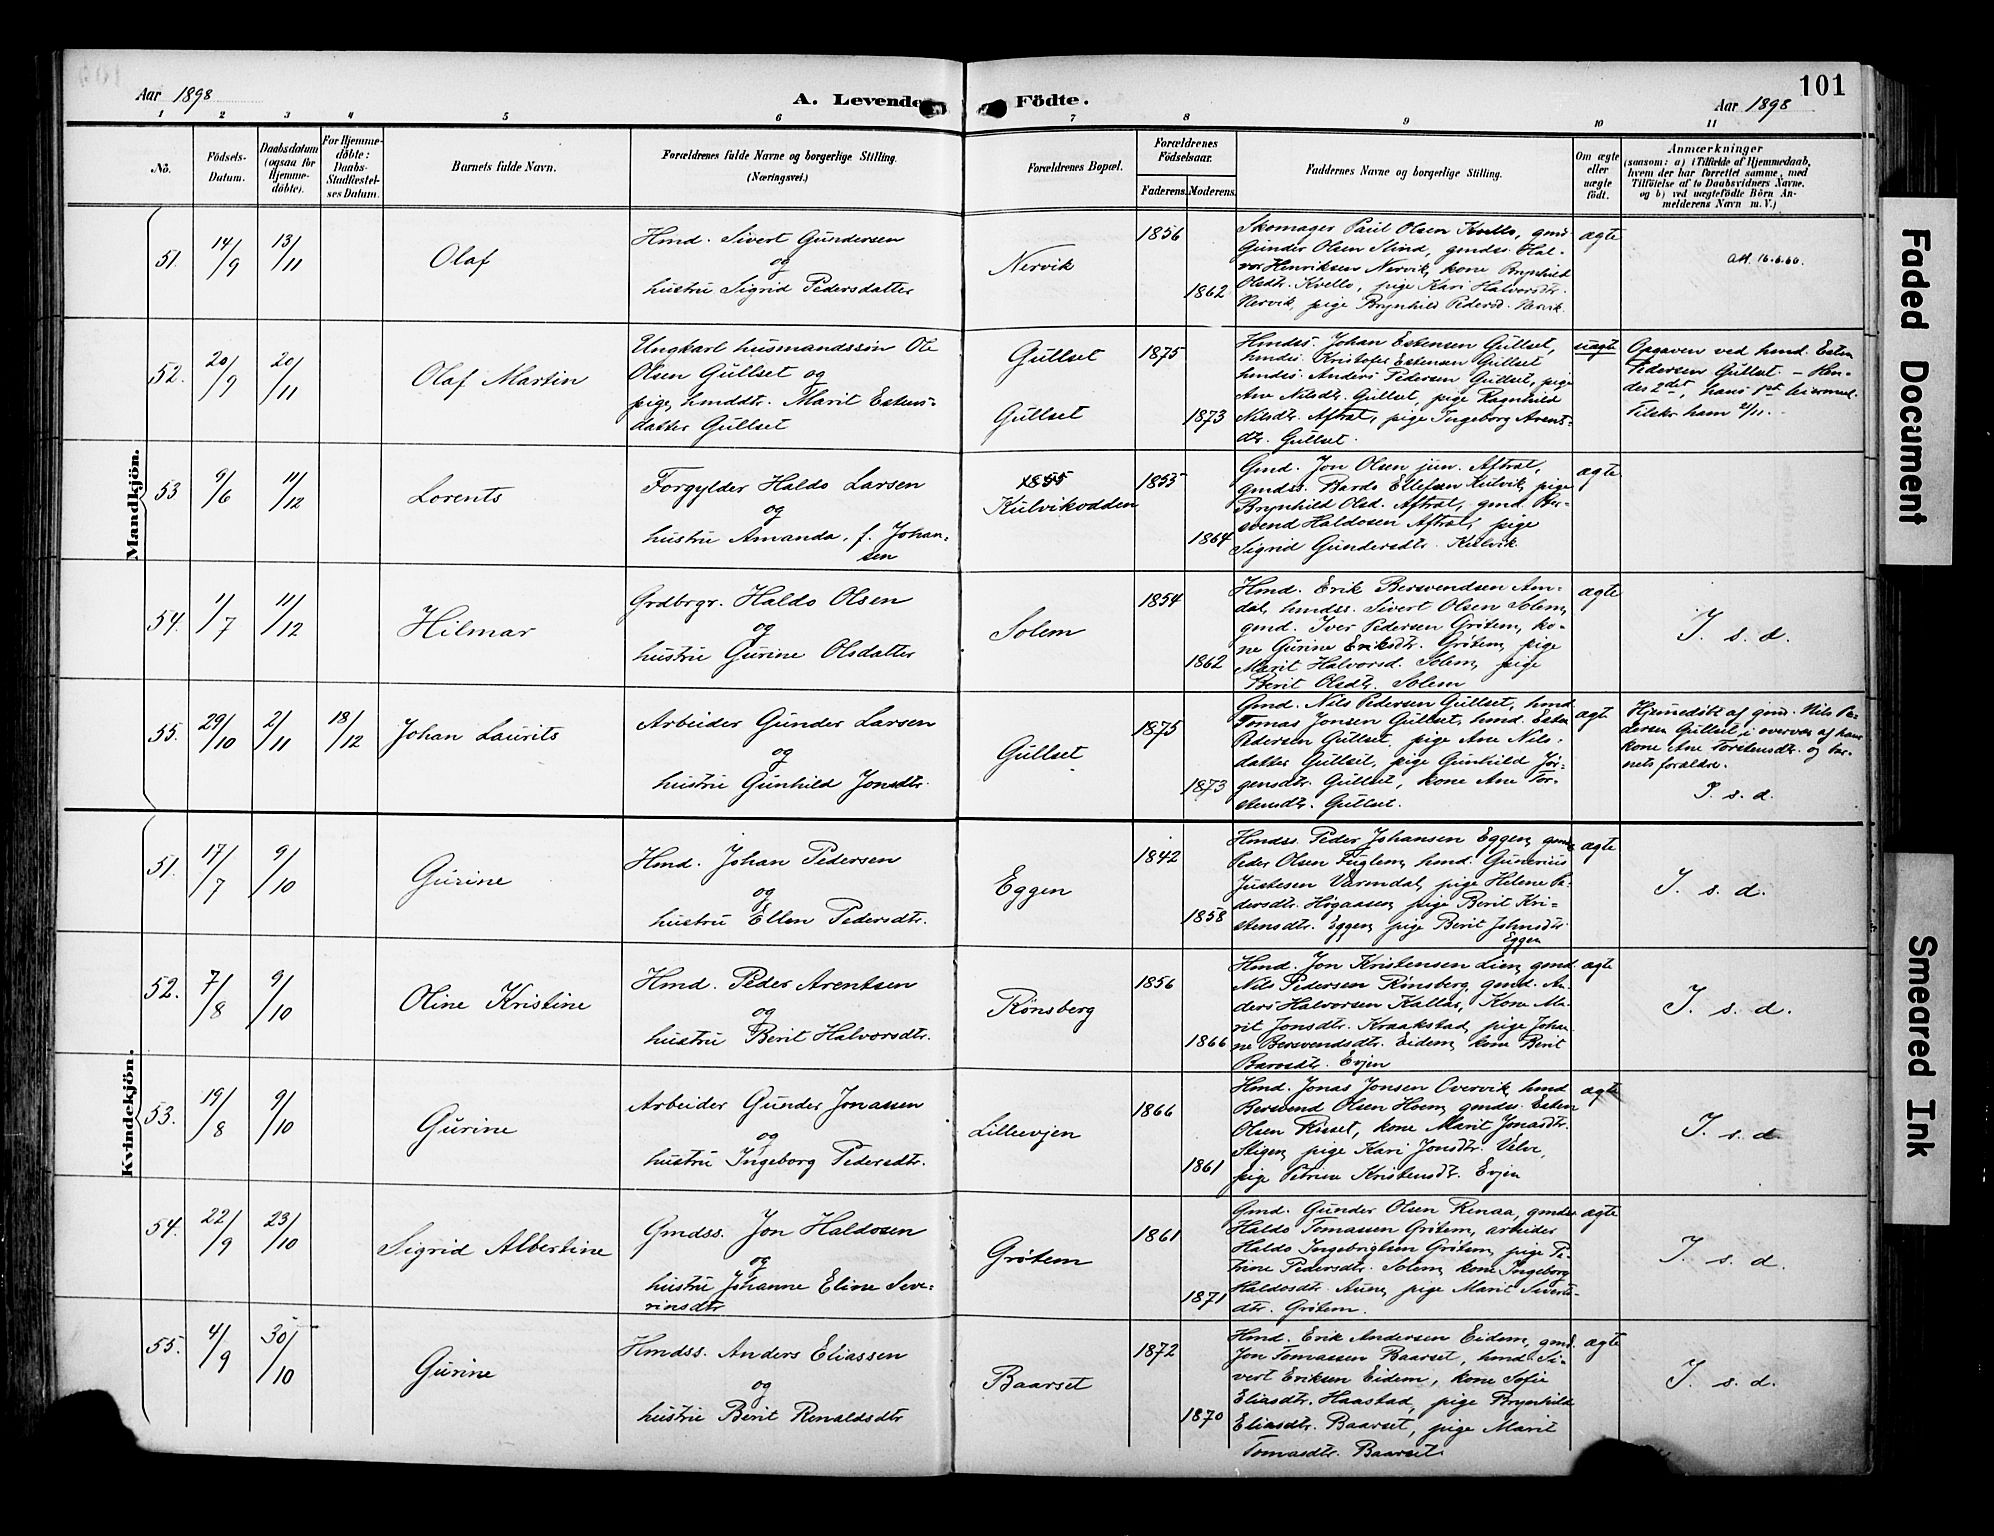 101
Aar 1898
A. Levende Födte.
Aar 1898
1 2 3 4 5 6 7 8 9 10 11
No.
Födsels-
Datum.
Daabsdatum
(ogsaa for
Hjemme-
döbte).
For Hjemme-
döbte:
Daabs-
Stadfæstel-
ses Datum.
Barnets fulde Navn.
Forældrenes fulde Navne og borgerlige Stilling.
(Næringsvei.)
Forældrenes Bopæl.
Forældrenes
Födselsaar.
Faderens.
Moderens.
Faddernes Navne og borgerlige Stilling.
Om ægte
eller
uægte
födt.
Anmærkninger
(saasom: a) i Tilfælde af Hjemmedaab,
hvem der har forrettet samme, med
Tilföielse af to Daabsvidners Navne,
og b) ved uægtefödte Börn An-
melderens Navn m. V.)
Mandkjön.
51. 14/9 13/11
Olaf
Hmd. Sivert Gundersen
og
hustru Sigrid Pedersdatter
Nervik
1856
1862
Skomager Paul Olsen Kvello, gmds
Gunder Olsen Slind, gmdss. Hal-
vor Henriksen Nervik, kone Brynhild
Olsdtr. Kvello, pige Kari Halvorsdtr.
Nervik, pige Brynhild Pedersd. Nervik.
ægte
att. 16.6.60.
52. 20/9 20/11
Olaf Martin
Ungkarl husmandssön Ole
Olsen Gullset og
pige, hmddtr. Marit Estens-
datter Gullset
Gullset
Gullset
1875
1873
Hmdss. Johan Estensen Gullset,
hmdss. Kristofer Estensen Gullset
hmdss. Anders Pedersen Gullset, pige
Ane Nilsdtr. Gullset, pige Ragnhild
Nilsdtr. Aftret, pige Ingeborg Arents-
dtr. Gullset.
uægte
Opgaven ved hmd. Esten
Pedersen Gullset. – Hen-
des 2det, hans 1ste leiermaal.
Tilstr. ham 2/11.
53 9/6 11/12
Lorents
Forgylder Haldo Larsen
og
hustru Amanda, f. Johan-
sen
1855
Kulvikodden
1855
1864
Gmd. Jon Olsen jun. Aftret,
gmdss. Bardo Ellefsen Kulvik, pige
Brynhild Olsd. Aftret, gmd. Ber-
svend Haldosen Aftret, pige
Sigrid Gundersdtr. Kulvik
ægte
54. 1/7 11/12
Hilmar
Grdbrgr. Haldo Olsen
og
hustru Gurine Olsdatter
Solem
1854
1862
Hmd. Erik Bersvendsen Am-
dal, hmdss. Sivert Olsen Solem,
gmd. Iver Pedersen Grötem, ko-
ne Gurine Eriksdtr. Grötem, pige
Marit Halvorsd. Solem, pige
Berit Olsdtr. Solem
ægte
I. s. d.
55. 29/10 2/11 18/12
Johan Laurits
Arbeider Gunder Larsen
og
hustru Gunhild Jonsdtr.
Gullset
1875
1873
Gmd. Nils Pedersen Gullset, hmd.
Tomas Jonsen Gullset, hmd. Esten
Pedersen Gullset, pige Ane Nils-
datter Gullset, pige Gunhild Jör-
gensdtr. Gullset, kone Ane Tor-
stensdtr. Gullset.
ægte
Hjemmedöbt af gmd. Nils Pe-
dersen Gullset i overvær af hans
kone Ane Torstensdtr. og bar-
nets forældre.
I. s. d.
Kvindekjön.
51. 17/7 9/10
Gurine
Hmd. Johan Pedersen
og
hustru Ellen Pedersdtr.
Eggen
1842
1858
Hmdss. Peder Johansen Eggen, gmds
Peder Olsen Fuglem, hmd. Gunerius
Justesen Varmdal, pige Helene Pe-
dersdtr. Högaasen, pige Berit Kri-
stensdtr. Eggen, pige Berit Johnsdtr.
Eggen
ægte
I. s. d.
52. 7/8 9/10
Oline Kristine
Hmd. Peder Arentsen
og
hustru Berit Halvorsdtr.
Rönsberg
1856
1866
Hmd. Jon Kristensen Lien, gmd.
Nils Pedersen Rönsberg, gmd. An-
ders Halvorsen Kallar, Kone Ma-
rit Jonsdtr. Kraakstad, pige Johan-
ne Bersvendsdtr. Eidem, kone Berit
Baardsdtr. Evjen
ægte
I. s. d.
53. 19/8 9/10
Gurine
Arbeider Gunder Jonassen
og
hustru Ingeborg Pedersdtr.
Lilleevjen
1866
1861
Hmd. Jonas Jonsen Overvik, hmd.
Bersvend Olsen Hoem, gmdss. Esten
Olsen Risset, kone Marit Jonasdtr.
Stigen, pige Kari Jonsdtr. Velve,
pige Petrine Kristensdtr. Evjen
ægte
I. s. d.
54. 22/9 23/10
Sigrid Albertine
Gmdss. Jon Haldosen
og
hustru Johanne Eline Seve-
rinsdtr
Grötem
1861
1871
Gmd. Gunder Olsen Renaa, gmdss
Haldo Tomassen Grötem, arbeider
Haldo Ingebrigtsen Grötem, pige Pe-
trine Pedersdtr. Solem, kone Ingeborg
Haldosdtr. Aune, pige Marit Siverts-
dtr. Grötem.
ægte
I. s. d.
55. 4/9 30/10
Gurine
Hmdss. Anders Eliassen
og
hustru Berit Renaldsdtr
Baarset
1872
1870
Hmd. Erik Andersen Eidem, gmd.
Jon Tomassen Baarset, hmd. Si-
vert Eriksen Eidem, kone Sofie
Eliasdtr. Haastad, pige Brynhild
Eliasdtr. Baarset, pige Marit
Tomasdtr. Baarset.
ægte
I. s. d.
Faded Document
Smeared Ink